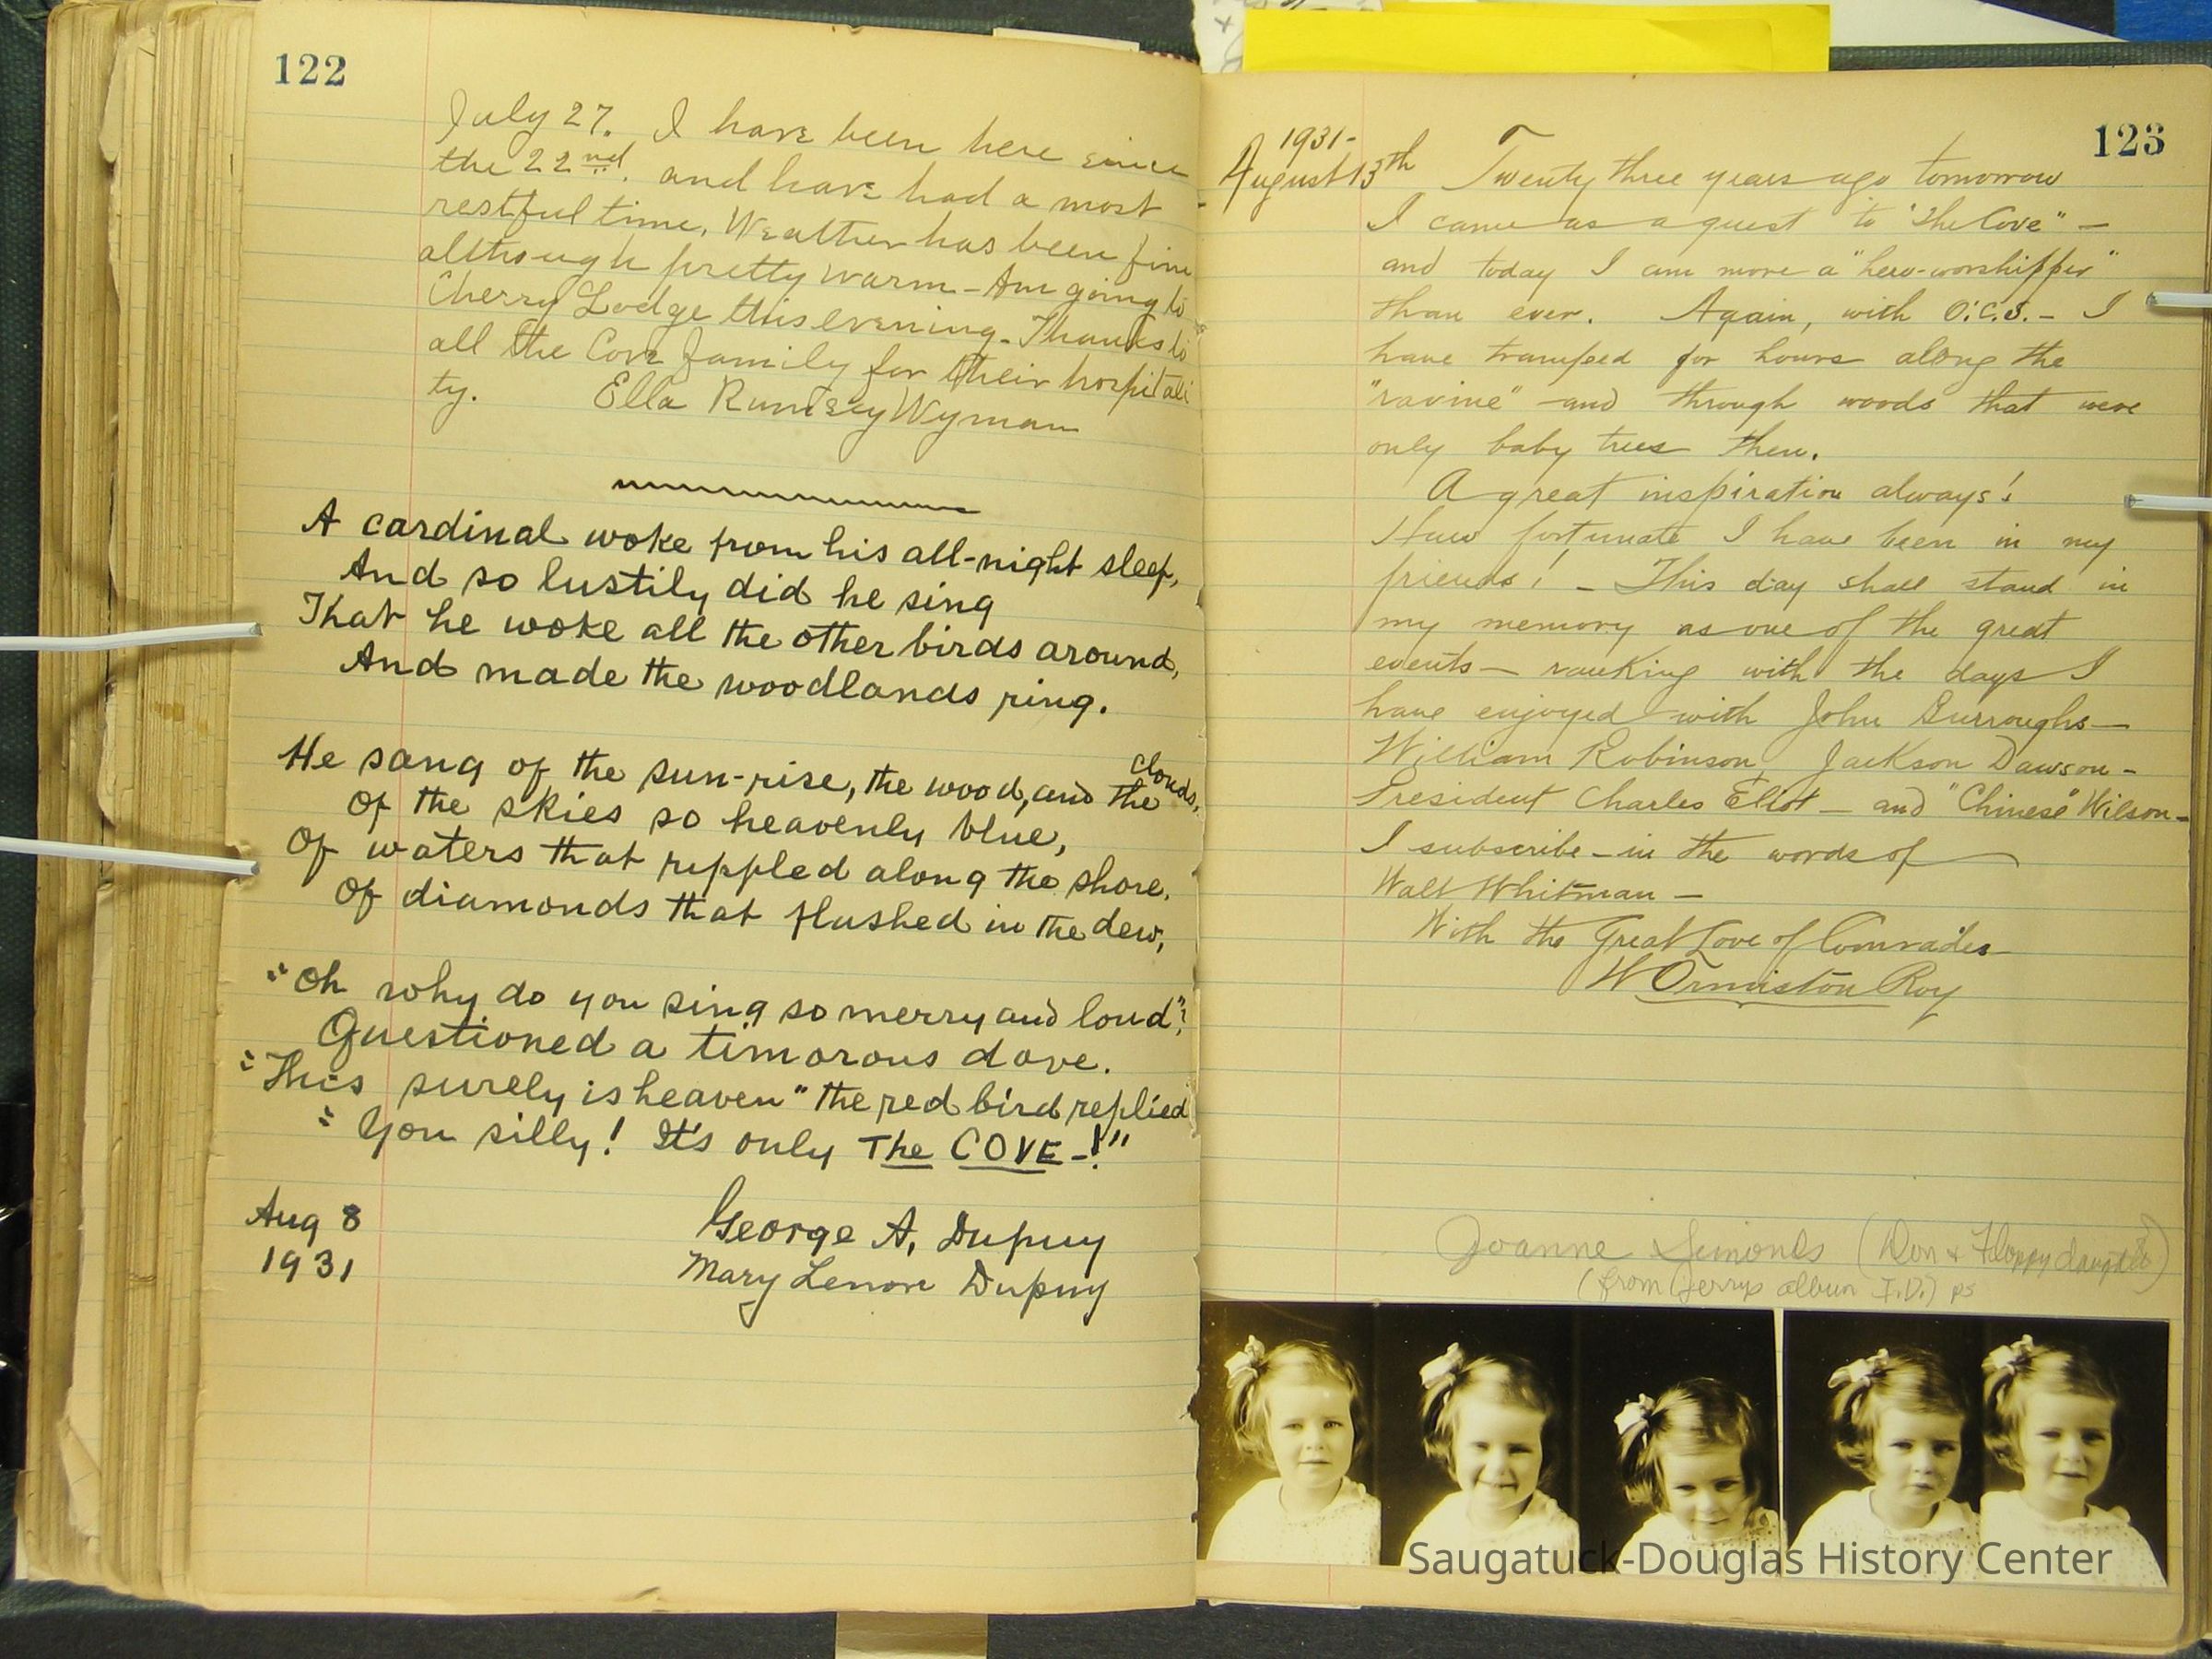 122
July 27. I have been here since
the 22nd. and have had a most
restful time. Weather has been fine
although pretty warm – Am going to
Cherry Lodge this evening. Thanks to
all the Cove family for their hospitali
ty. Ella Rumsey Wyman
A cardinal woke from his all-night sleep,
And so lustily did he sing
That he woke all the other birds around,
And made the woodlands ring.
He sang of the sun-rise, the wood, and the clouds,
Of the skies so heavenly blue,
Of waters that rippled along the shore,
Of diamonds that flashed in the dew,
"Oh why do you sing so merry and loud"?
Questioned a timorous dove.
"This surely is heaven" the red bird replied
"You silly! It's only The COVE-!"
Aug 8
1931
George A. Dupuy
Mary Lenore Dupuy
123
1931-
August 13th Twenty three years ago tomorrow
I came as a guest to "The Cove" –
and today I am more a "hero-worshipper"
than ever. Again, with O.C.S. – I
have tramped for hours along the
"ravine" and through woods that were
only baby trees then.
A great inspiration always!
How fortunate I have been in my
friends! – This day shall stand in
my memory as one of the great
events – ranking with the days I
have enjoyed with John Burroughs –
William Robinson Jackson Dawson –
President Charles Eliot – and "Chinese" Wilson –
I subscribe – in the words of
Walt Whitman –
With the Great Love of Comrades
W Ormiston Roy
Joanne Simonds (Don + Floppy daughter)
(from Gerrys album I.D.) ps
Saugatuck-Douglas History Center